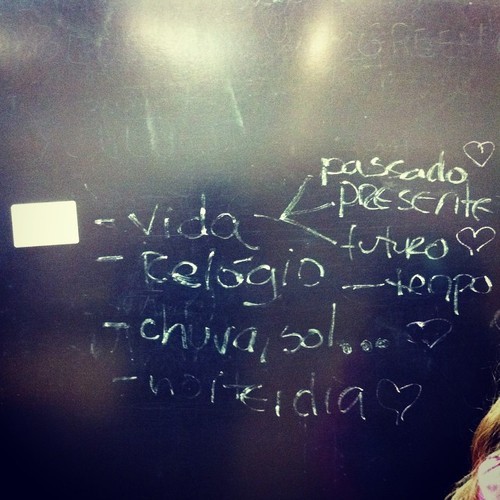 passado
PRESENTE
- vida
futuro
- Relógio - tempo
- chuva, sol...
- noite, dia